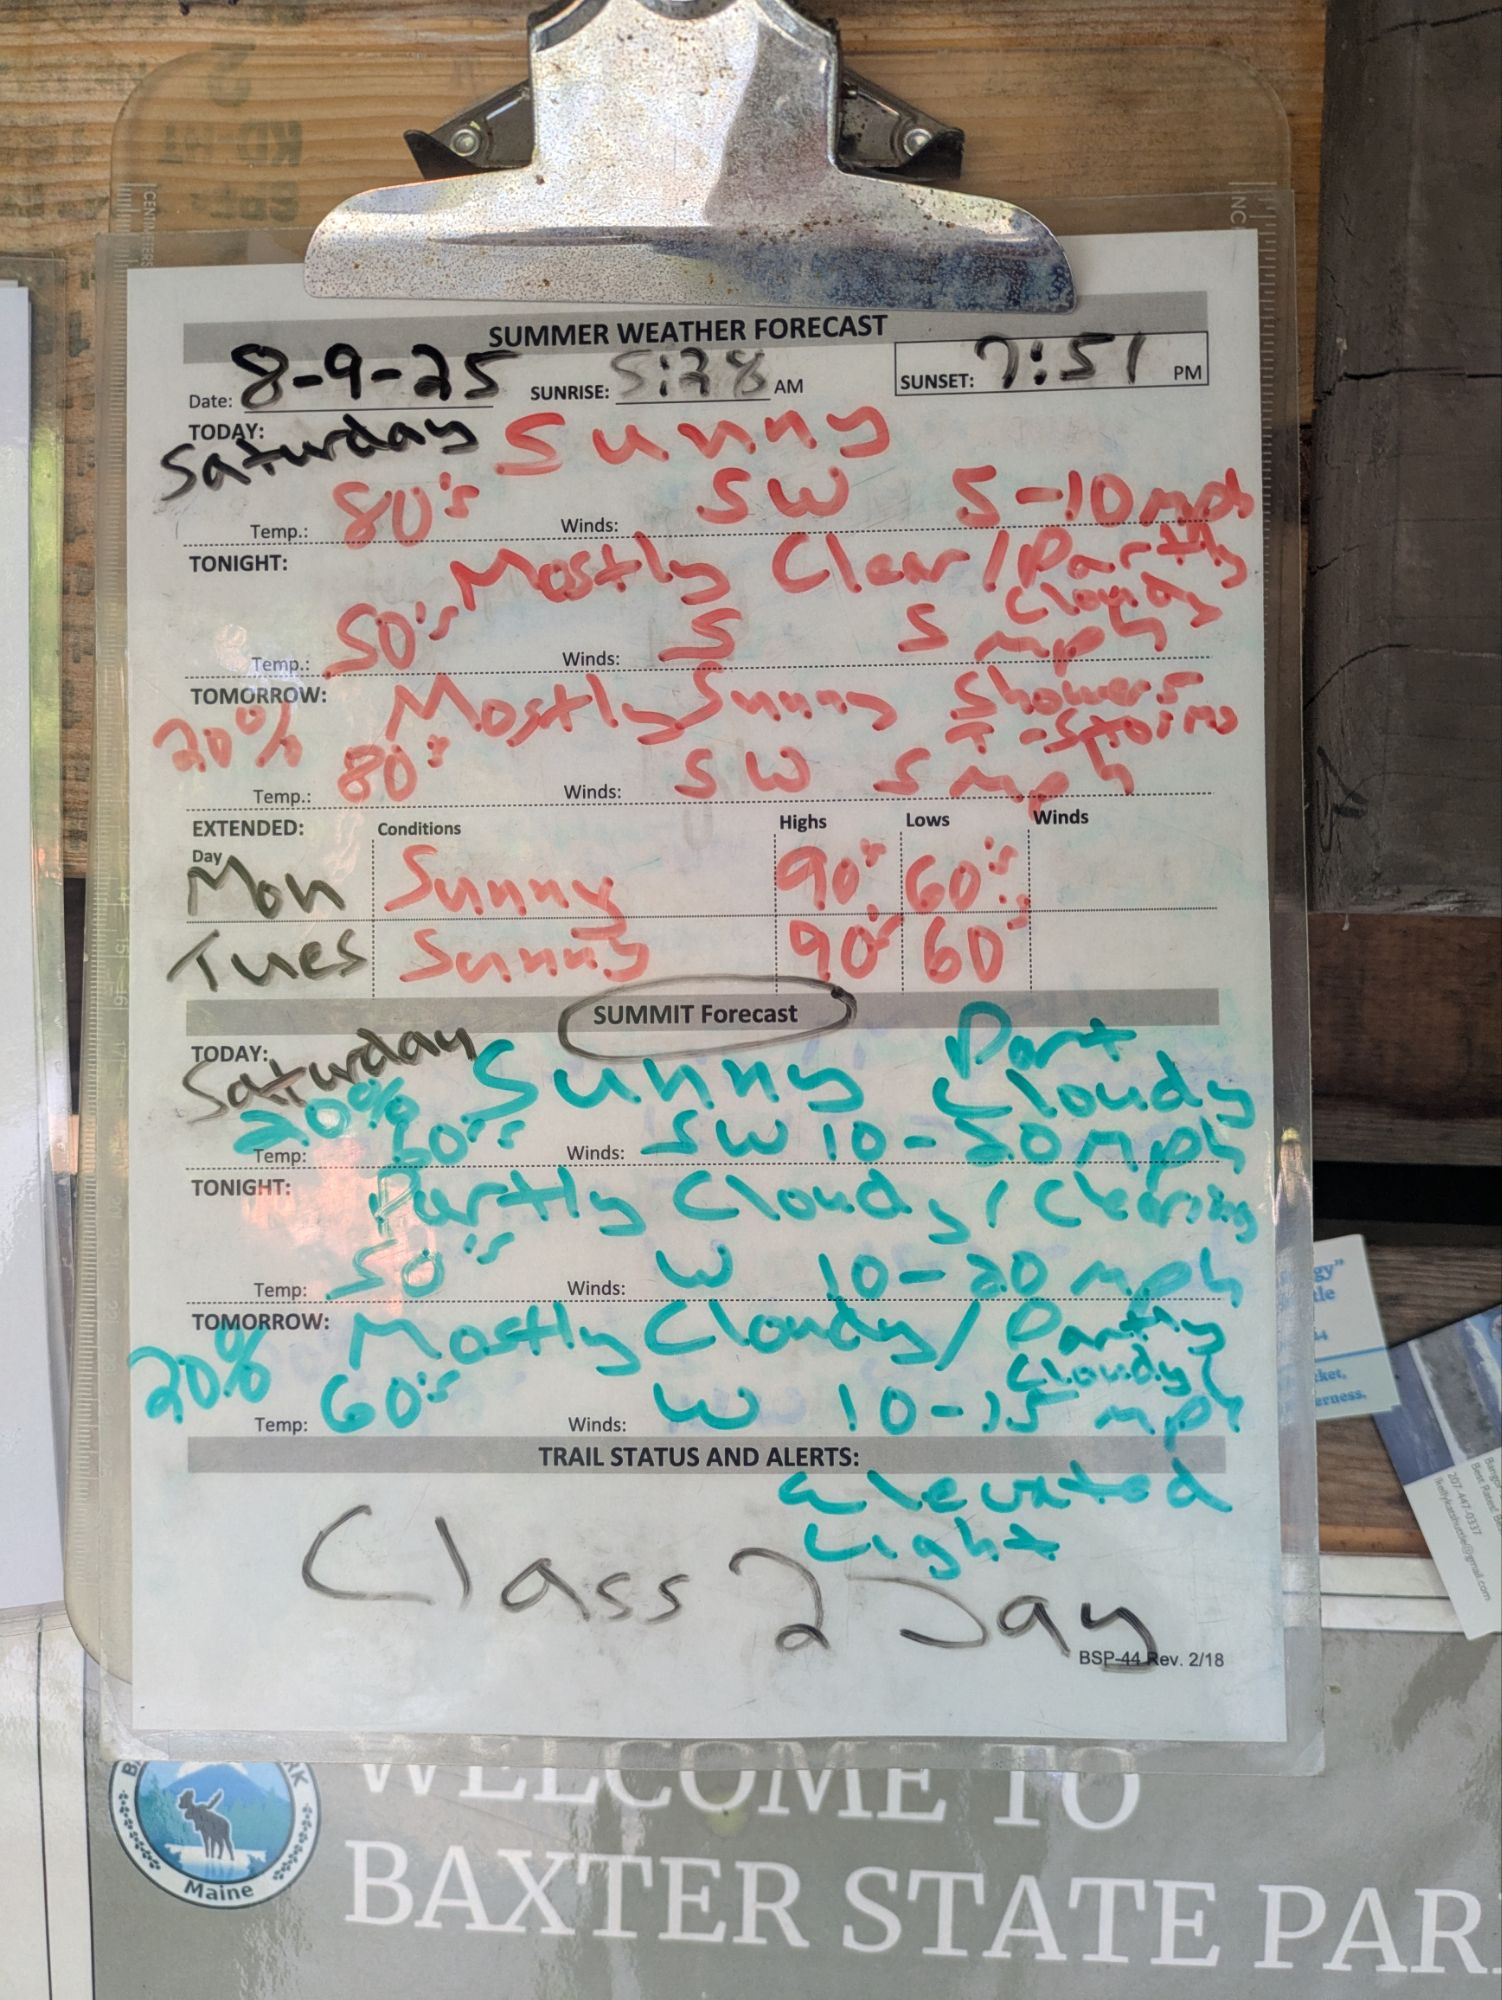 SUMMER WEATHER FORECAST
Date: 8-9-25 SUNRISE: 5:28 AM SUNSET: 7:51 PM
TODAY: Saturday Sunny
Temp.: 80's Winds: SW 5-10 mph
TONIGHT: Mostly Clear/Partly Cloudy
Temp.: 50's Winds: S 5 mph
TOMORROW: Mostly Sunny Showers T-Storms
20%
Temp.: 80's Winds: SW 5 mph
EXTENDED: Conditions Highs Lows Winds
Day
Mon Sunny 90's 60's
Tues Sunny 90's 60's
SUMMIT Forecast
TODAY: Saturday Sunny Part Cloudy
20%
Temp: 60's Winds: SW 10-20 mph
TONIGHT: Partly Cloudy / Clearing
Temp: 50's Winds: W 10-20 mph
TOMORROW: Mostly Cloudy / Partly Cloudy
20%
Temp: 60's Winds: W 10-15 mph
TRAIL STATUS AND ALERTS:
Elevated Light
Class 2 Day
BSP-44 Rev. 2/18
WELCOME TO
BAXTER STATE
Maine
207-447-0337